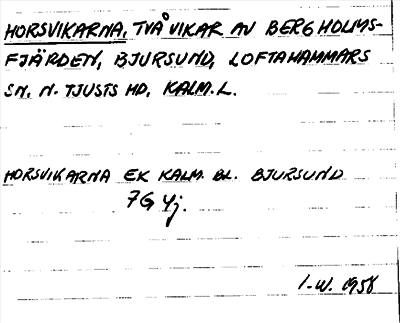 HORSVIKARNA, TVÅ VIKAR AV BERGHOLMS-
FJÄRDEN, BJURSUND, LOFTAHAMMARS
SN, N. TJUSTS HD, KALM. L.
HORSVIKARNA EK KALM. BL. BJURSUND
7G 4j.
I-W. 1958